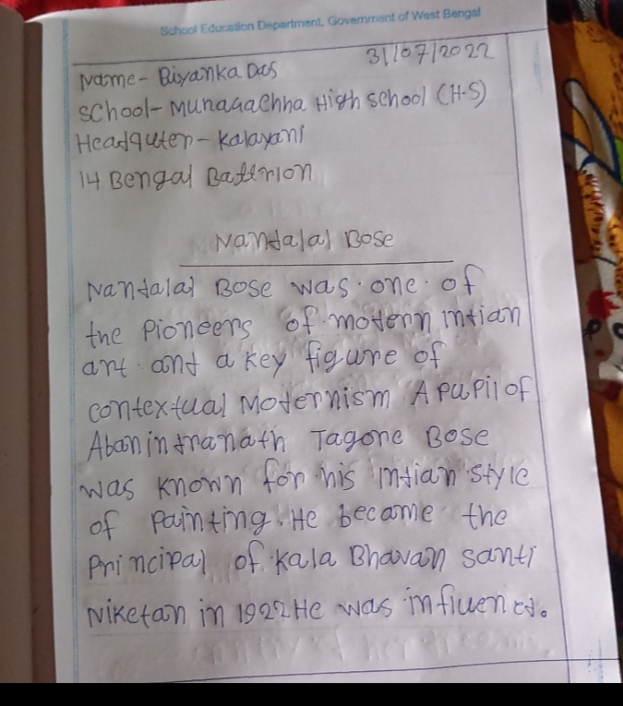 School Education Department, Government of West Bengal
31/07/2022
Name- Biyanka Das
School- Munagachha High school (H.S)
Headquter - Kalayani
14 Bengal Battrion
Nandalal Bose
Nandalal Bose was one of
the Pioneers of modern indian
art and a key figure of
contextual Modernism A pupil of
Abanindranath Tagore Bose
was known for his indian style
of painting. He became the
Principal of Kala Bhavan santi
Niketan in 1922 He was influenced.